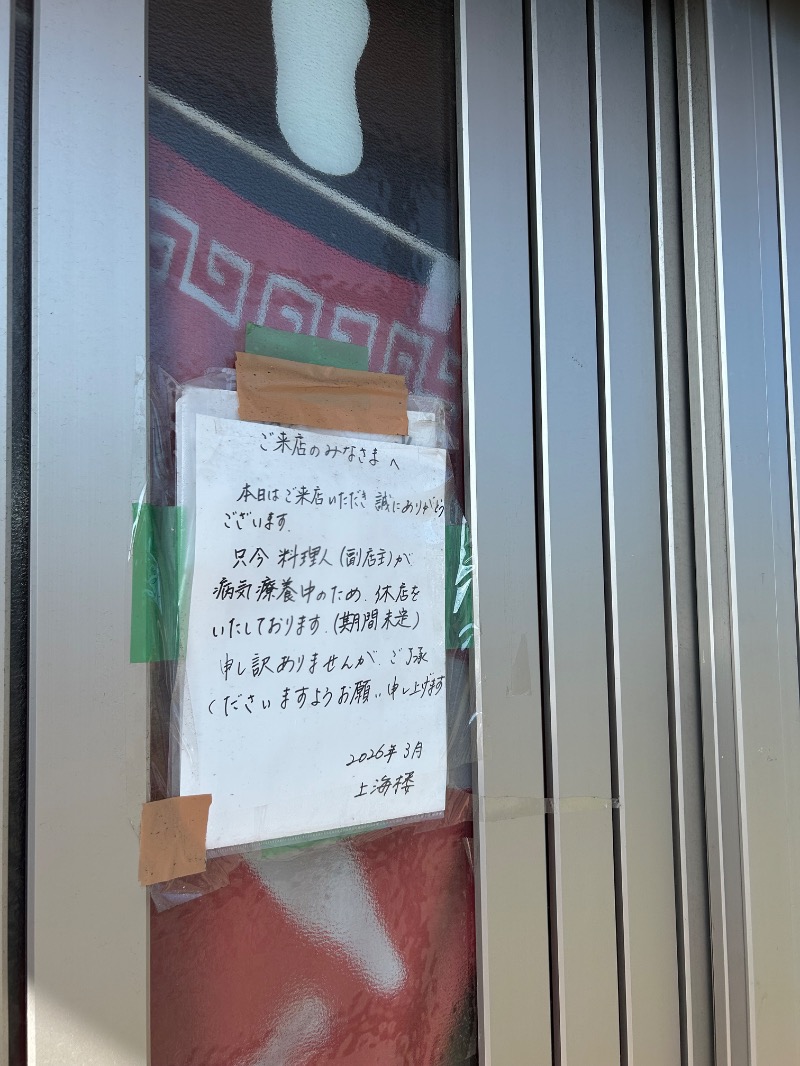 ご来店のみなさまへ
本日はご来店いただき 誠にありがとう
ございます.
只今 料理人(副店主)が
病気療養中のため. 休店を
いたしております.(期間未定)
申し訳ありませんが. ご了承
くださいますようお願い申し上げます
2026年3月
上海楼